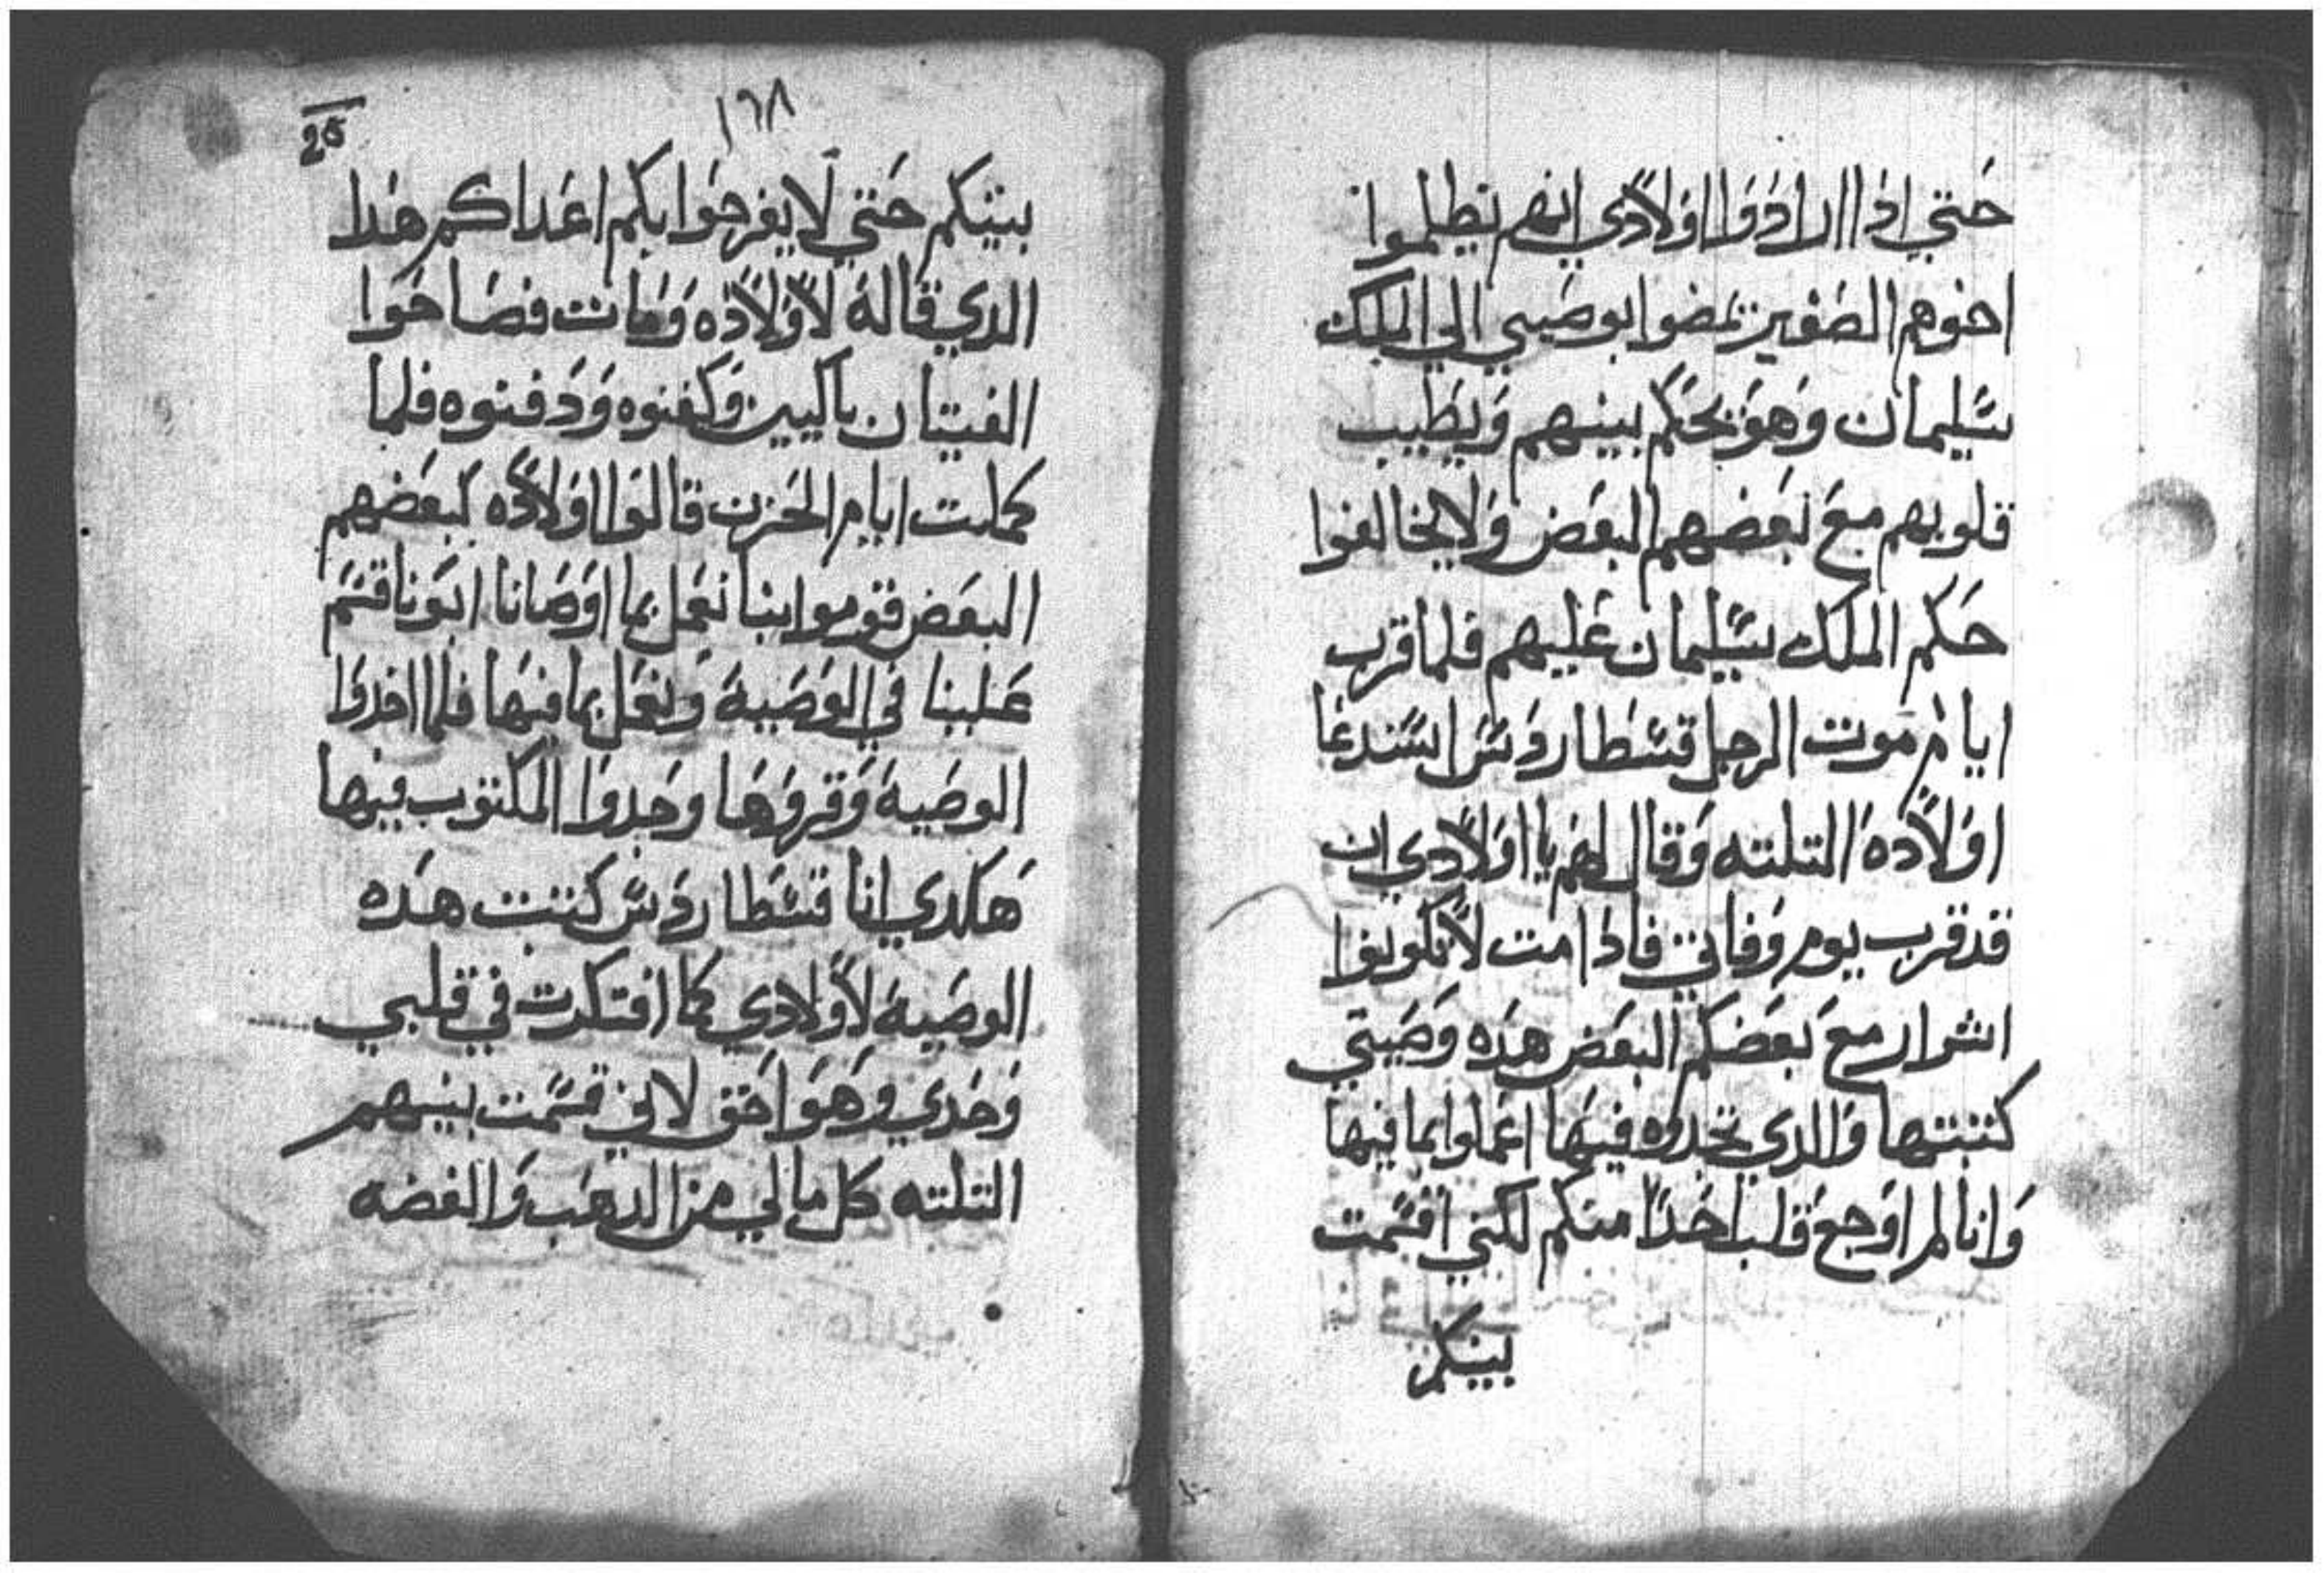 حتي اذا ارادوا اولادي انهم يظلموا
اخوهم الصغير يمضوا بوصيتي الي الملك
سليمان وهو يحكم بينهم ويطيب
قلوبهم مع بعضهم البعض ولا يخالفوا
حكم الملك سليمان عليهم فلما قرب
ايام موت الرجل قسطاروس استدعا
اولاده التلته وقال لهم يا اولادي ان
قد قرب يوم وفاتي فاذا مت لا تكونوا
اشرار مع بعضكم البعض هده وصيتي
كتبتها والدي تجدوه فيها اعملوا بما فيها
وانا لم اوجع قلب احدا منكم لكني اقسمت
بينكم
١٦٨
26
بينكم حتي لا يفرحوا بكم اعداكم هدا
الدي قاله لاولاده ومات فصاحوا
الفتيان باكيين وكفنوه ودفنوه فلما
كملت ايام الحزن قالوا اولاده لبعضهم
البعض قوموا بنا نعمل بما اوصانا ابونا قسم
علينا في الوصية ونعمل بما فيها فلما اخدوا
الوصية وقروها وجدوا المكتوب فيها
هكدي انا قسطاروس كتبت هده
الوصية لاولادي كما افتكرت في قلبي
وحدي وهو احق لاني قسمت بينهم
التلته كل ما لي من الدهب والفضه